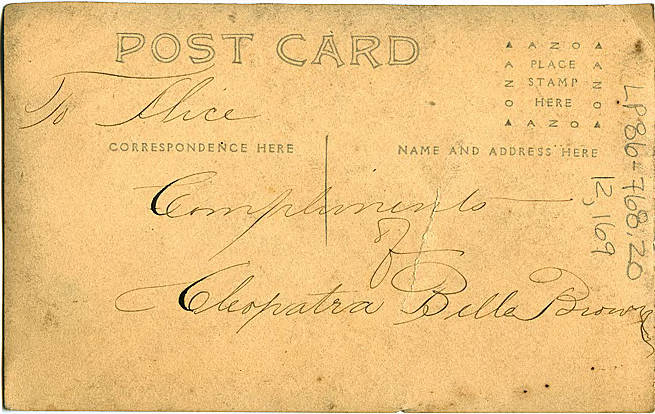 POST CARD
▲ A Z O ▲
A PLACE A
N STAMP Z
O HERE O
▲ A Z O ▲
To Alice
CORRESPONDENCE HERE
NAME AND ADDRESS HERE
Compliments
of
Cleopatra Belle Brown
LP86-768.20
12,169